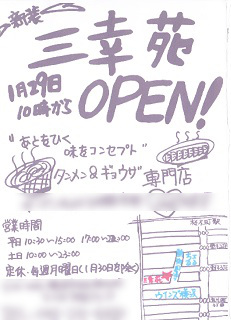 新装
三幸苑
1月29日
10時から
OPEN!
"あともひく
味をコンセプト"
タンメン&ギョウザ
専門店
営業時間
平日 10:30~15:00 17:00~22:00
土日 10:00~23:00
定休・毎週月曜日(1月30日部会)
三幸苑
ウインズ横浜